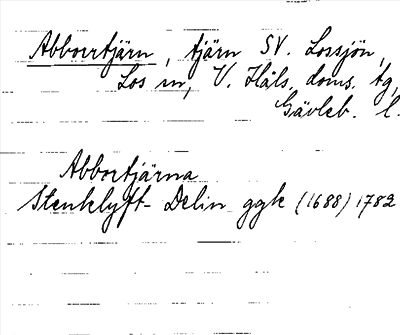 Abborrtjärn, tjärn SV. Lossjön,
Los sn, V. Häls. doms. tg,
Gävleb. l.
Abbortjärna
Stenklyft- Delin ggk (1688) 1782